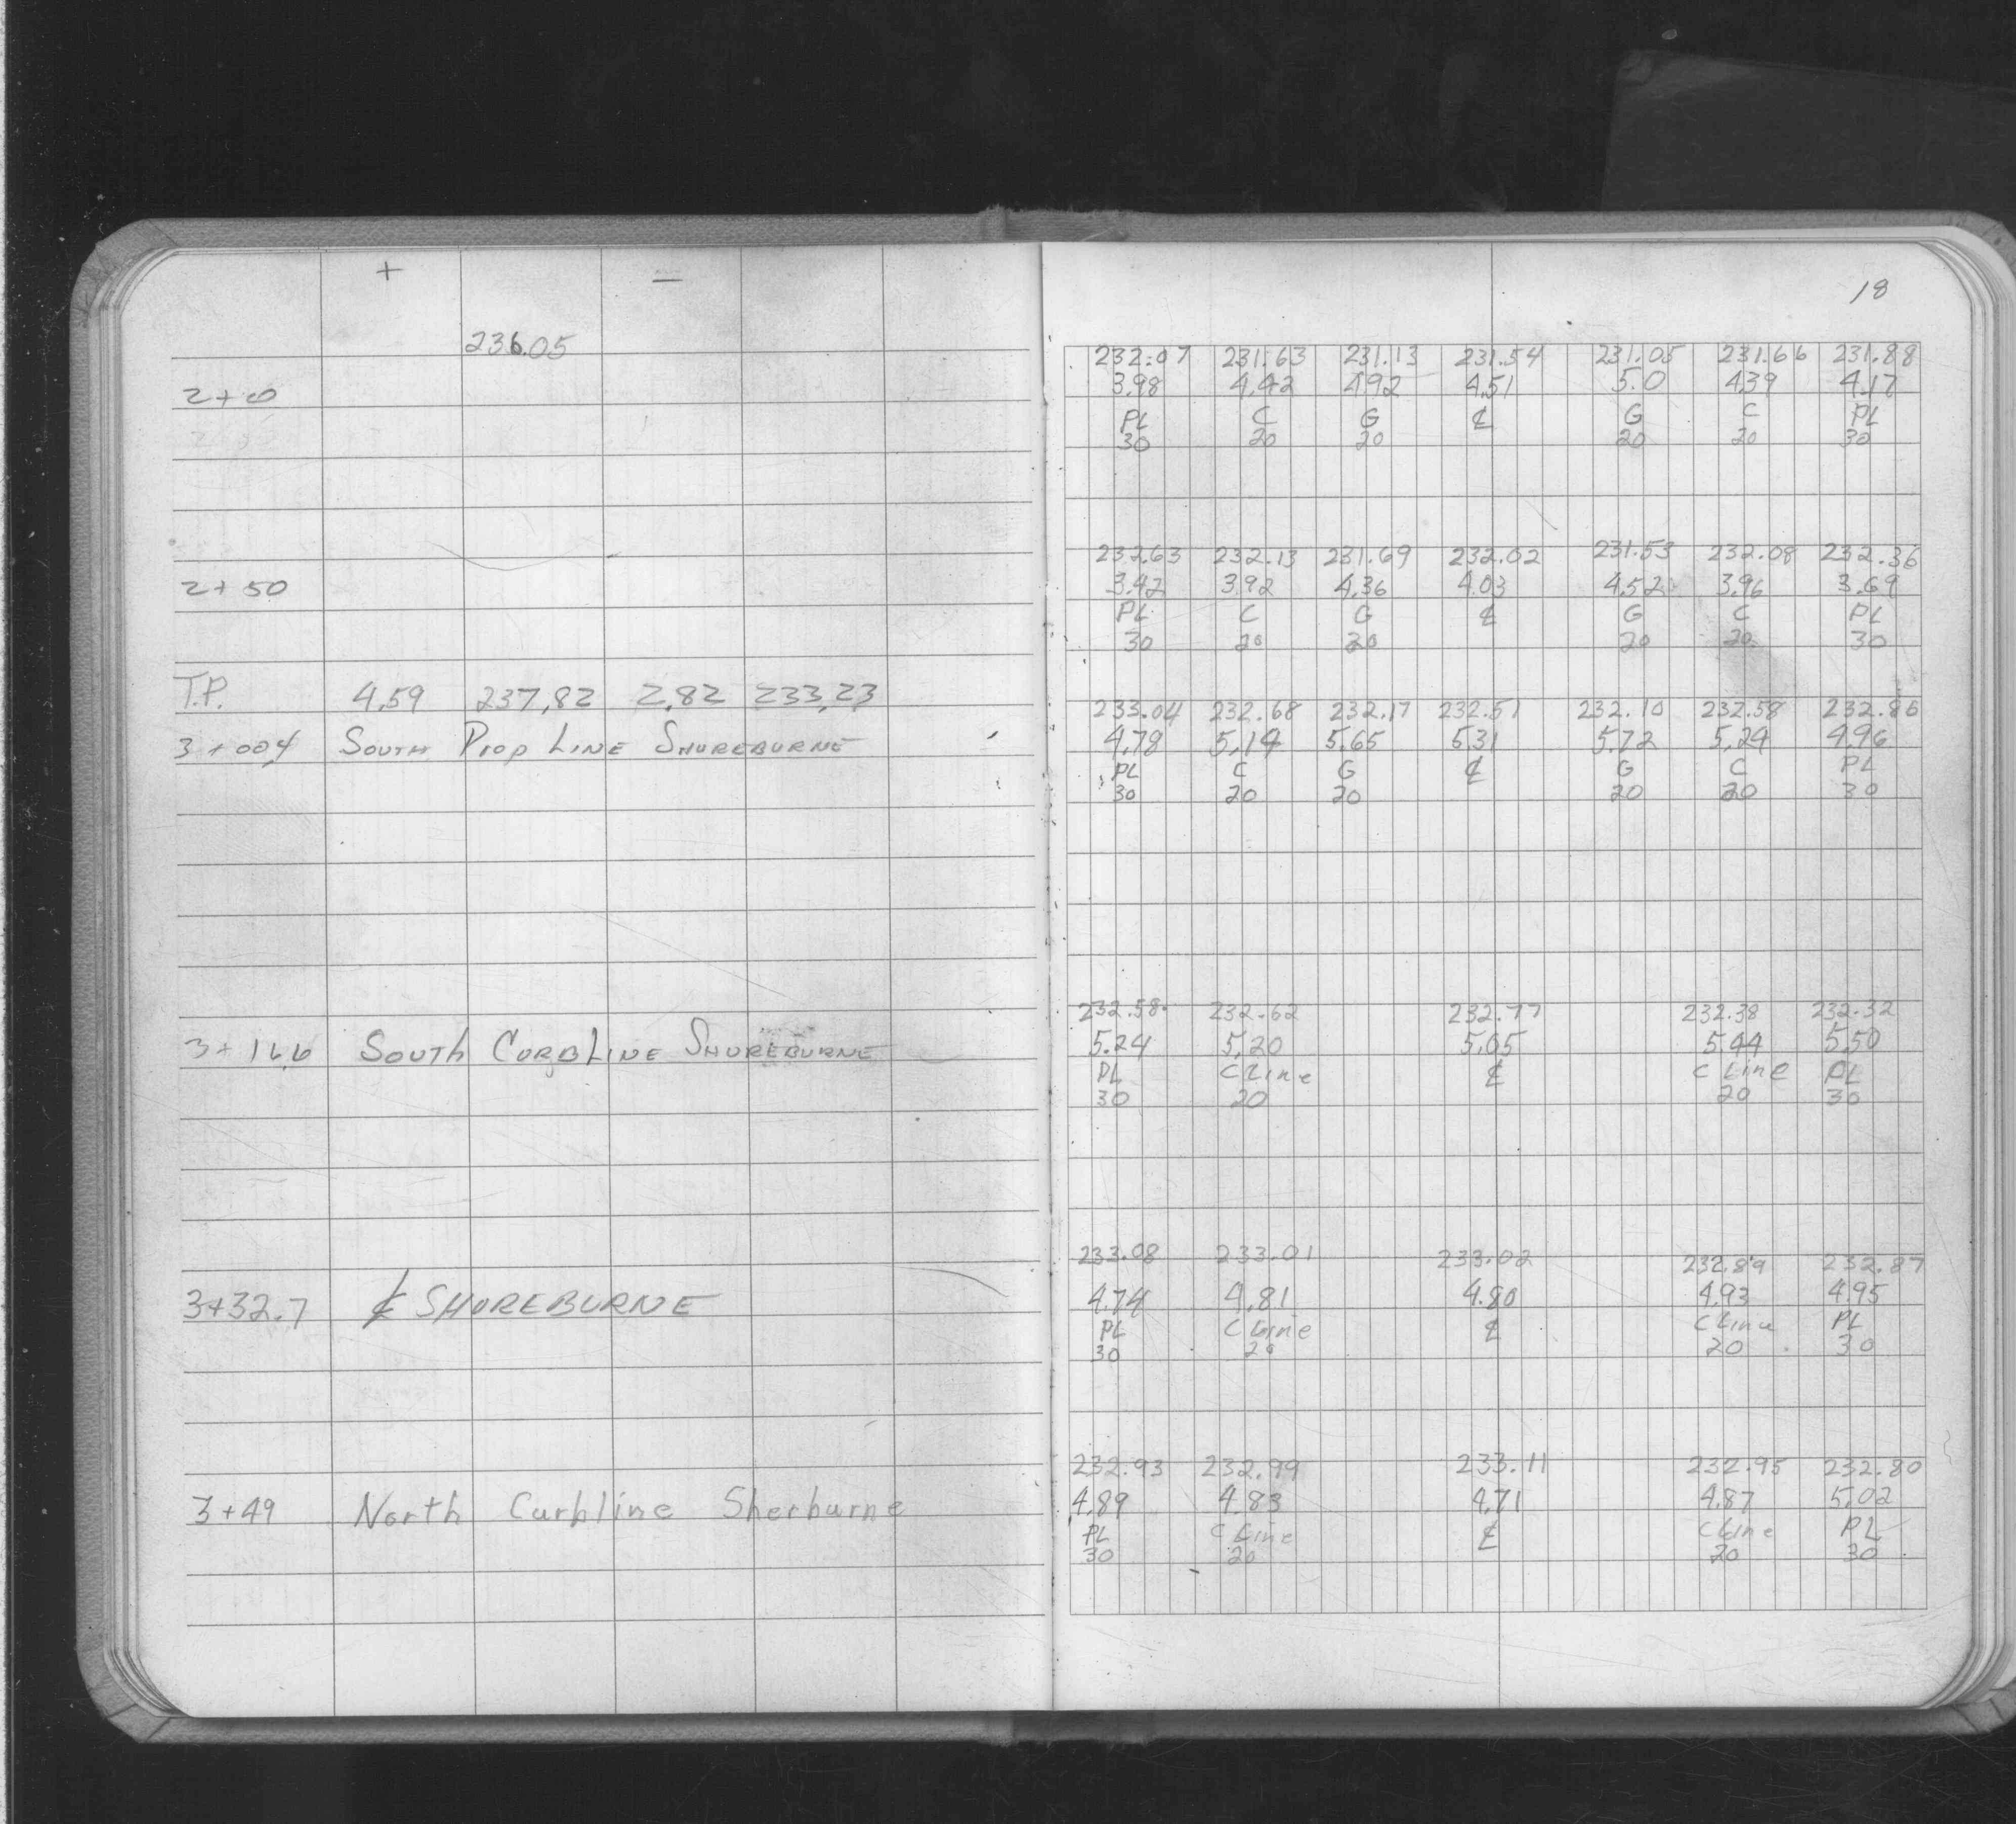 + −
236.05
2+00
2+50
T.P. 4.59 237.82 2.82 233.23
3+00.4 South Prop Line Shureburne
3+16.6 South Curb Line Shureburne
3+32.7 ℄ SHUREBURNE
3+49 North Curbline Sherburne
18
232.07 231.63 231.13 231.54 231.05 231.66 231.88
3.98 4.42 4.92 4.51 5.0 4.39 4.17
PL C G ℄ G C PL
30 20 20 20 20 30
232.63 232.13 231.69 232.02 231.53 232.08 232.36
3.42 3.92 4.36 4.03 4.52 3.96 3.69
PL C G ℄ G C PL
30 20 20 20 20 30
233.04 232.68 232.17 232.51 232.10 232.58 232.86
4.78 5.14 5.65 5.31 5.72 5.24 4.96
PL C G ℄ G C PL
30 20 20 20 20 30
232.58 232.62 232.77 232.38 232.32
5.24 5.20 5.05 5.44 5.50
PL C Line ℄ C Line PL
30 20 20 30
233.08 233.01 233.02 232.89 232.87
4.74 4.81 4.80 4.93 4.95
PL C Line ℄ C Line PL
30 20 20 30
232.93 232.99 233.11 232.95 232.80
4.89 4.83 4.71 4.87 5.02
PL C Line ℄ C Line PL
30 20 20 30